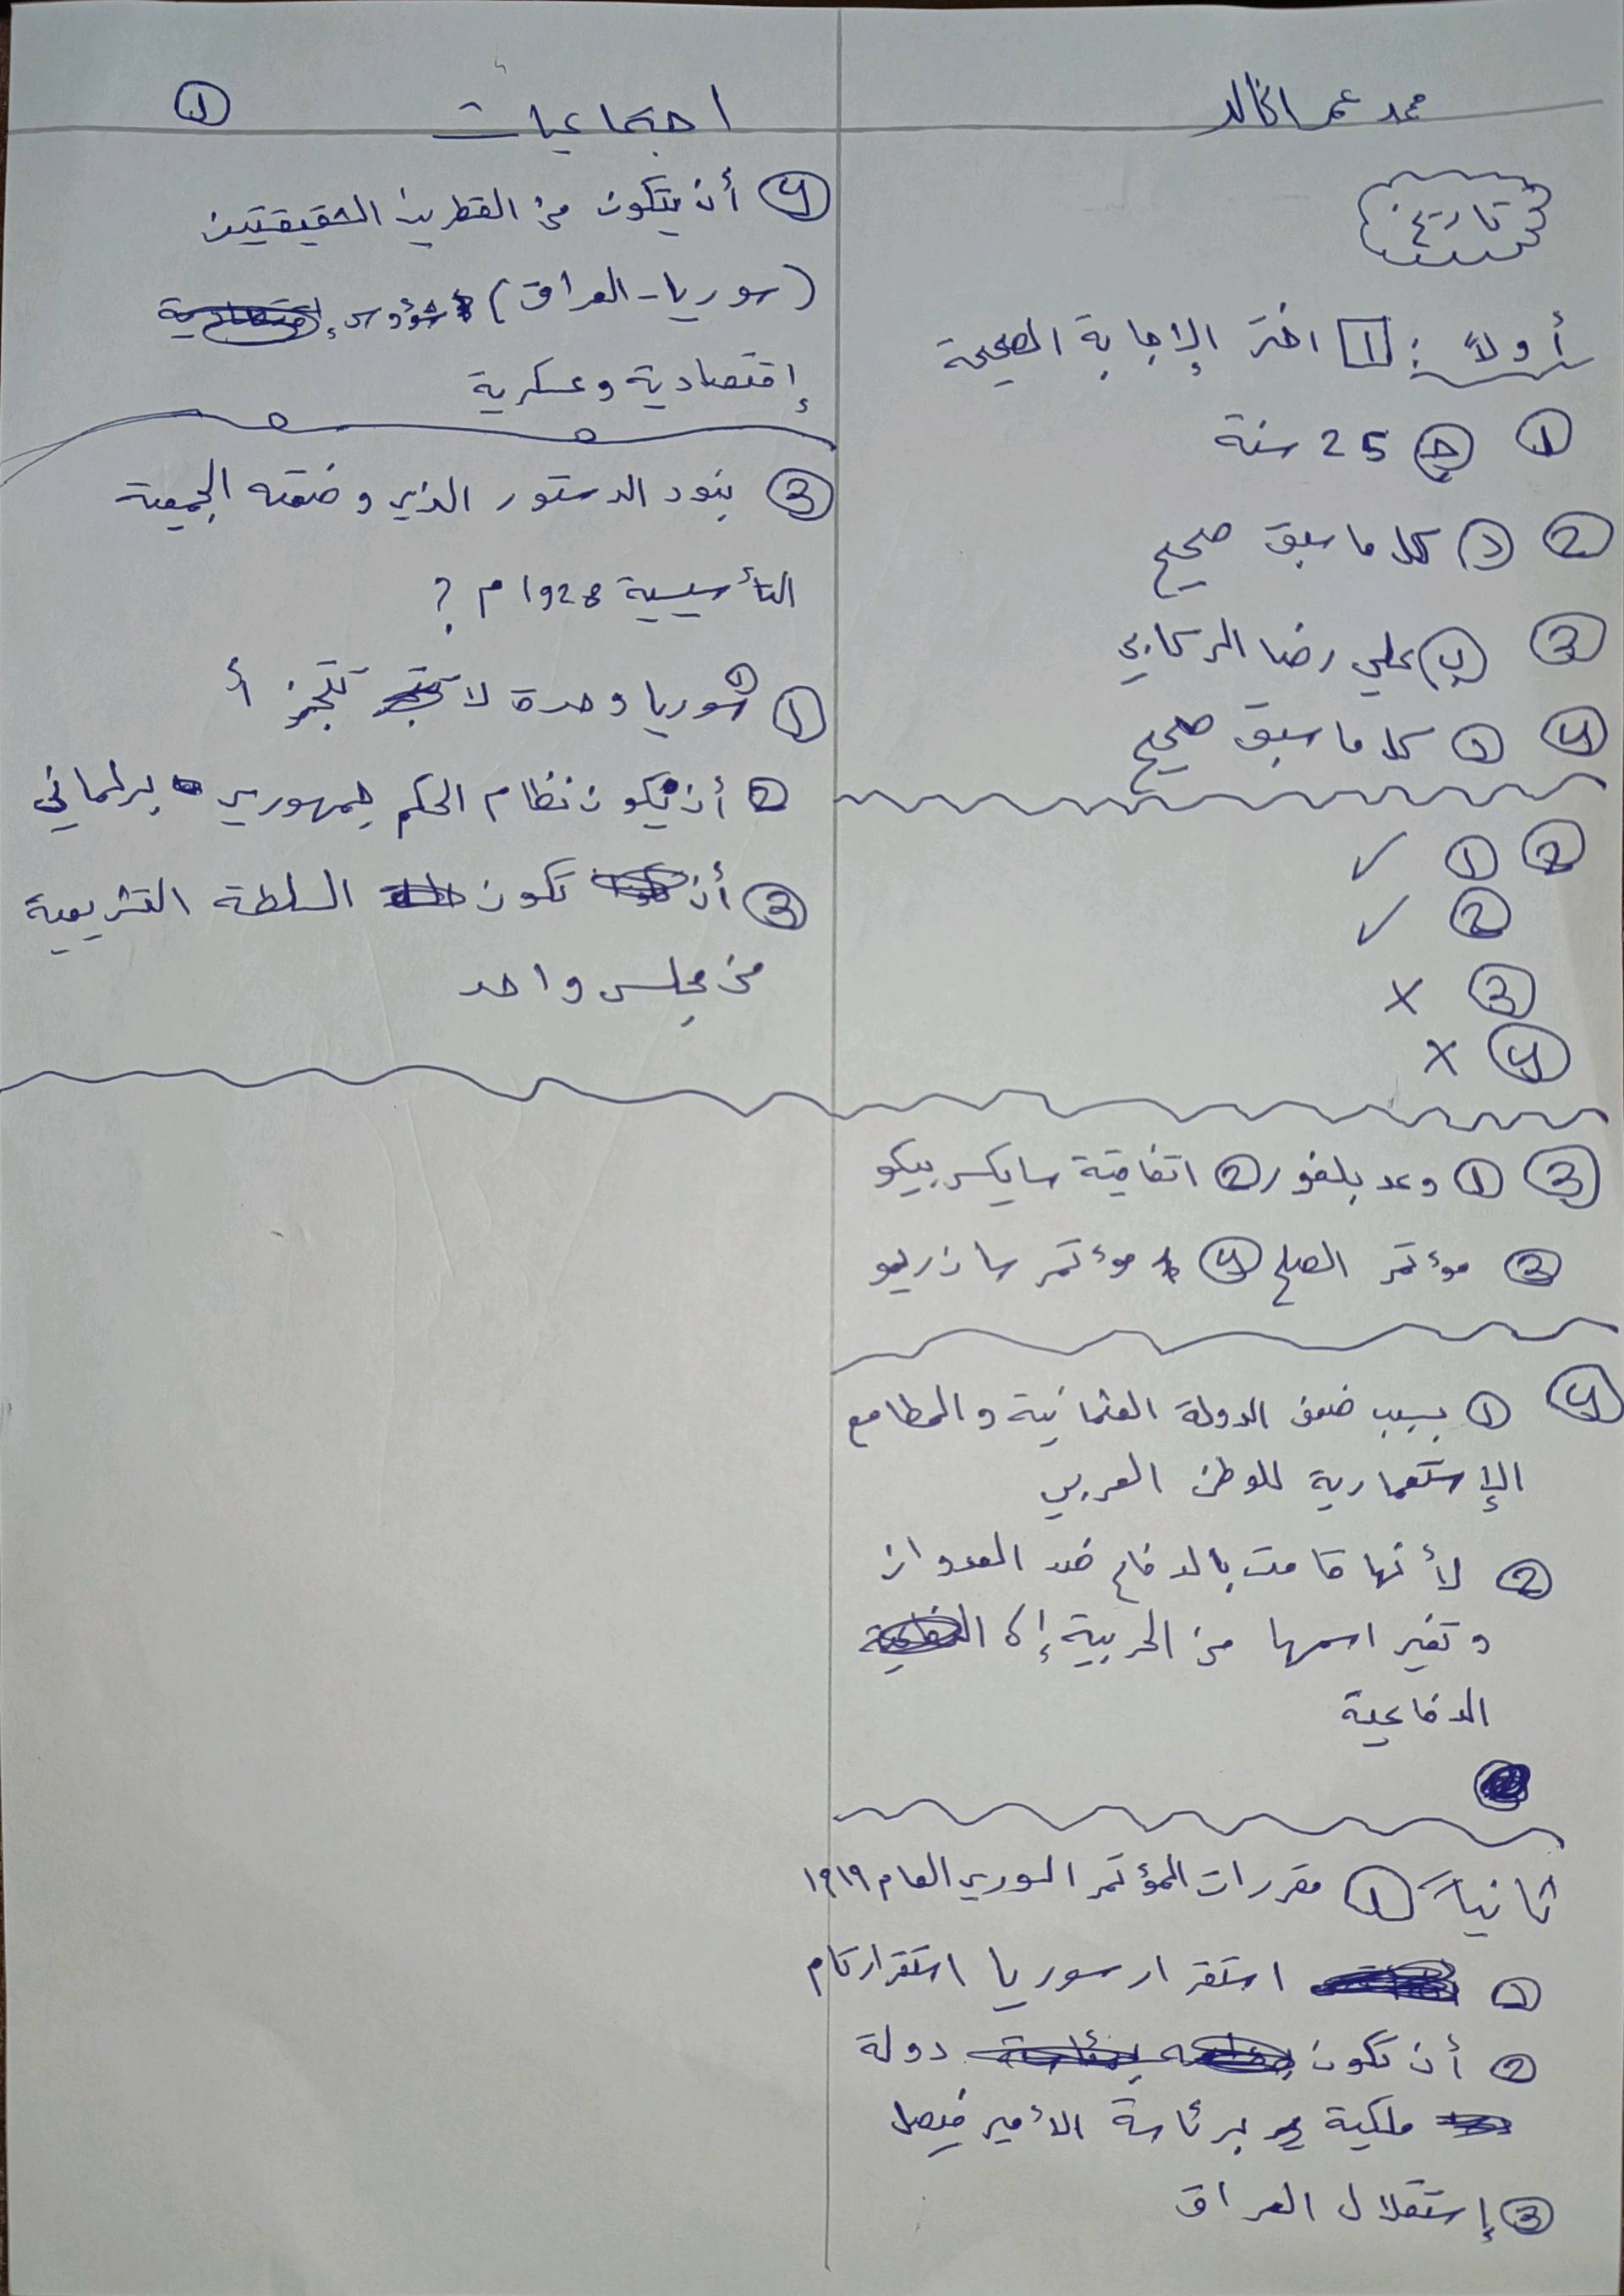 محمد عمر الخالد
اجتماعيات ①
تاريخ
أولاً : 1 اختر الإجابة الصحيحة
① ⓗ 25 سنة
② د كل ما سبق صحيح
③ ب علي رضا الركابي
④ د كل ما سبق صحيح
② ① ✓
② ✓
③ ×
④ ×
③ ① وعد بلفور ② اتفاقية سايكس بيكو
③ مؤتمر الصلح ④ مؤتمر سان ريمو
④ ① بسبب ضعف الدولة العثمانية والمطامع
الإستعمارية للوطن العربي
② لأنها قامت بالدفاع ضد العدوان
وتغير اسمها من الحربية إلى
الدفاعية
ثانياً ① مقررات المؤتمر السوري العام ١٩١٩
① استقرار سوريا استقرار تام
② أن تكون دولة
ملكية برئاسة الأمير فيصل
③ إستقلال العراق
④ أن يتكون من القطرين الشقيقتين
(سوريا - العراق) شؤون
إقتصادية وعسكرية
③ بنود الدستور الذي وضعته الجمعية
التأسيسية 1928 م ؟
① سوريا وحدة لا تتجزأ
② أن يكون نظام الحكم جمهوري برلماني
③ أن تكون السلطة التشريعية
من مجلس واحد